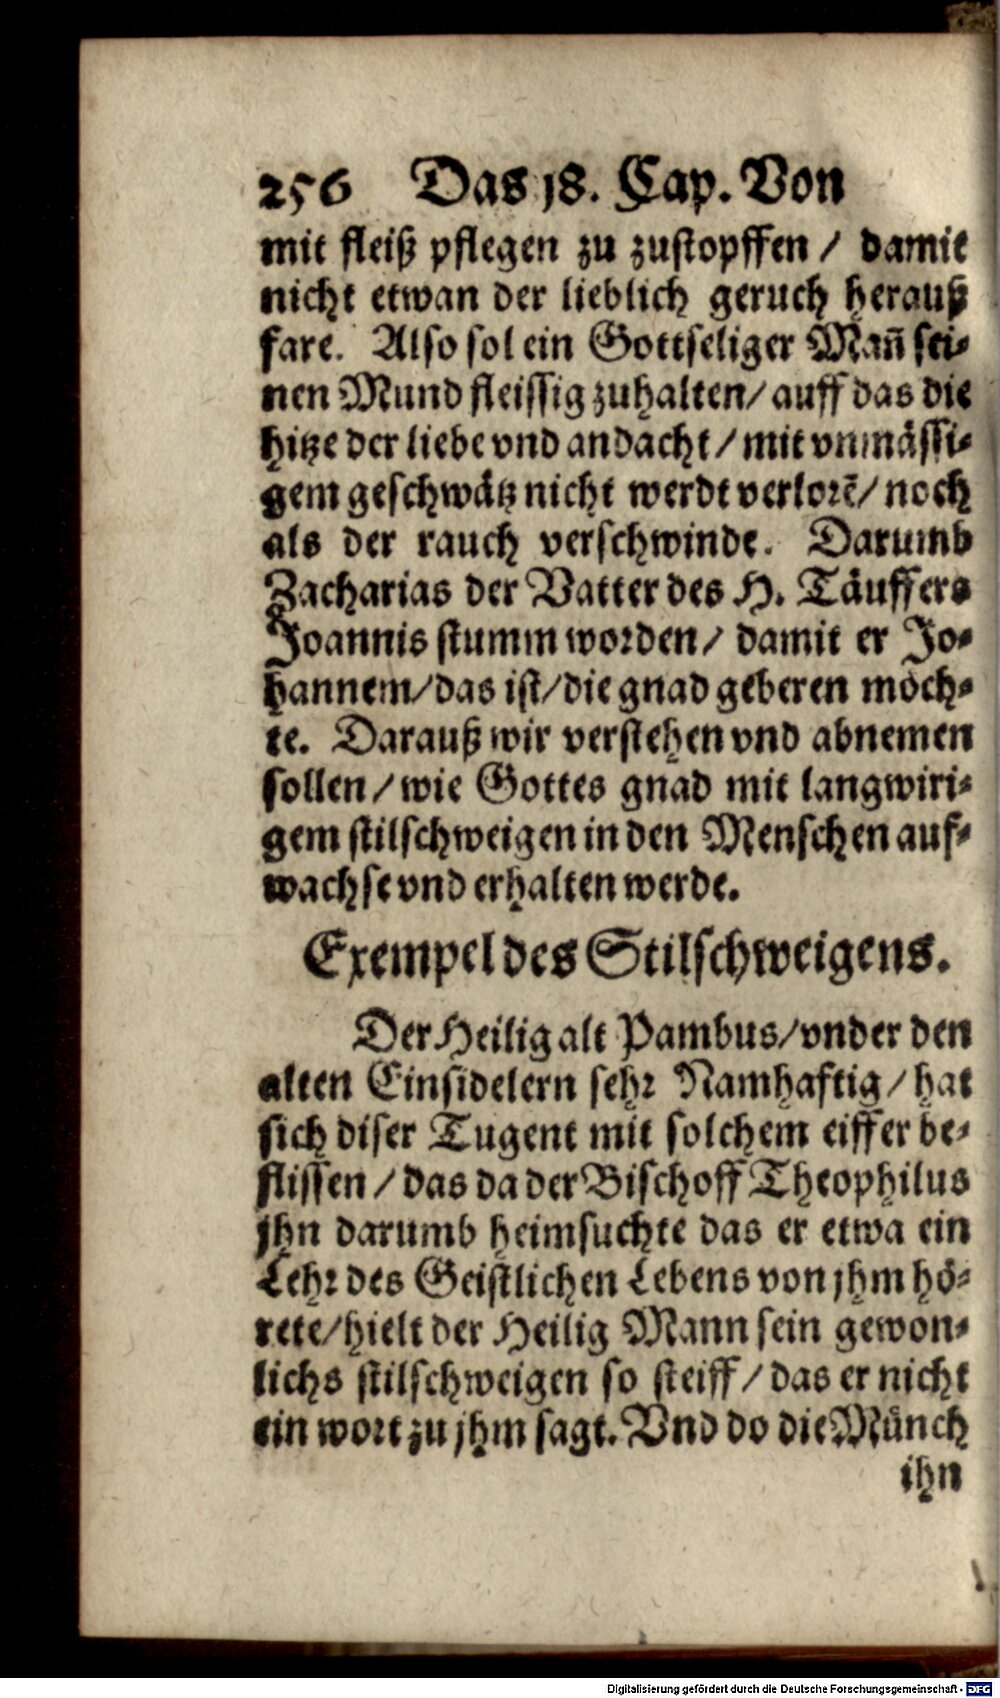 256 Das 18. Cap. Von
mit fleiß pflegen zu zustopffen / damit
nicht etwan der lieblich geruch herauß
fare. Also sol ein Gottseliger Mañ sei-
nen Mund fleissig zuhalten/ auff das die
hitze der liebe vnd andacht / mit vnmässi-
gem geschwätz nicht werdt verlorē/ noch
als der rauch verschwinde. Darumb
Zacharias der Vatter des H. Täuffers
Joannis stumm worden / damit er Jo-
hannem/das ist/die gnad geberen möch-
te. Darauß wir verstehen vnd abnemen
sollen / wie Gottes gnad mit langwiri-
gem stilschweigen in den Menschen auf-
wachse vnd erhalten werde.
Exempel des Stilschweigens.
Der Heilig alt Pambus/vnder den
alten Einsidelern sehr Namhaftig / hat
sich diser Tugent mit solchem eiffer be-
flissen / das da der Bischoff Theophilus
jhn darumb heimsuchte das er etwa ein
Lehr des Geistlichen Lebens von jhm hö-
rete/hielt der Heilig Mann sein gewon-
lichs stilschweigen so steiff / das er nicht
ein wort zu jhm sagt. Vnd do die Münch
ihn
Digitalisierung gefördert durch die Deutsche Forschungsgemeinschaft - DFG